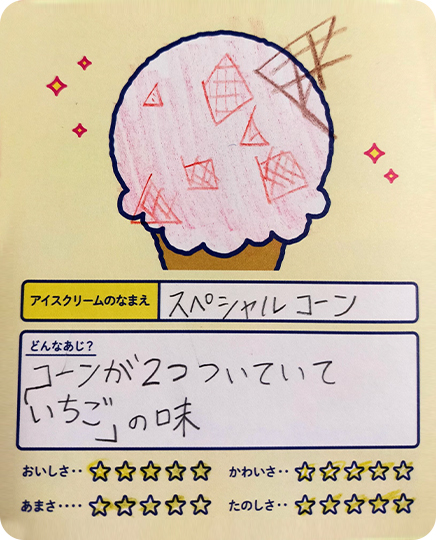 アイスクリームのなまえ スペシャルコーン
どんなあじ？
コーンが2つついていて
「いちご」の味
おいしさ‥ ☆☆☆☆☆ かわいさ‥ ☆☆☆☆☆
あまさ‥‥ ☆☆☆☆☆ たのしさ‥ ☆☆☆☆☆